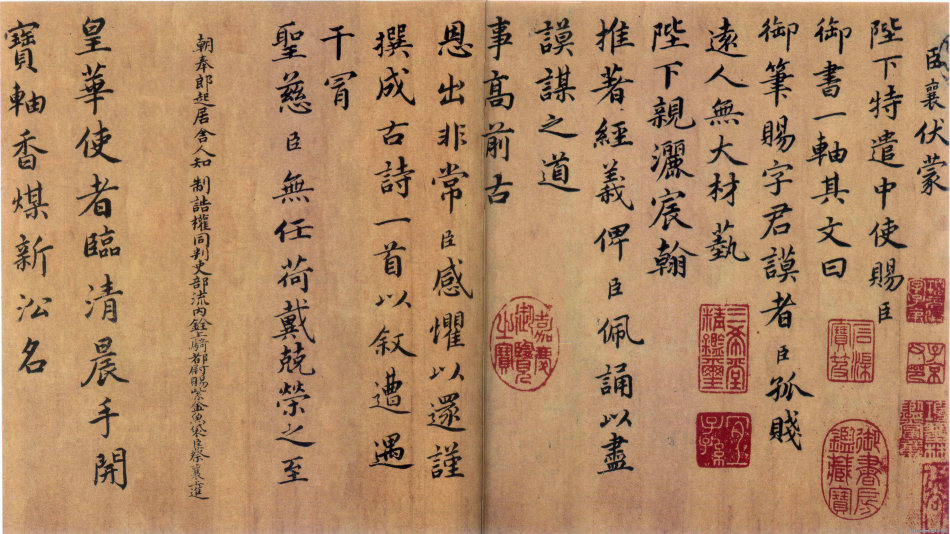 臣襄伏蒙
陛下特遣中使賜臣
御書一軸其文曰
御筆賜字君謨者臣孤賤
遠人無大材藝
陛下親灑宸翰
推著經義俾臣佩誦以盡
謨謀之道
事高前古
恩出非常臣感懼以還謹
撰成古詩一首以叙遭遇
干冒
聖慈臣無任荷戴兢榮之至
朝奉郎起居舍人知 制誥權同判吏部流內銓上騎都尉賜紫金魚袋臣蔡襄上進
皇華使者臨清晨手開
寶軸香煤新沿名
石渠寶笈
御書房鑑藏寶
三希堂精鑑璽
宜子孫
嘉慶御覽之寶